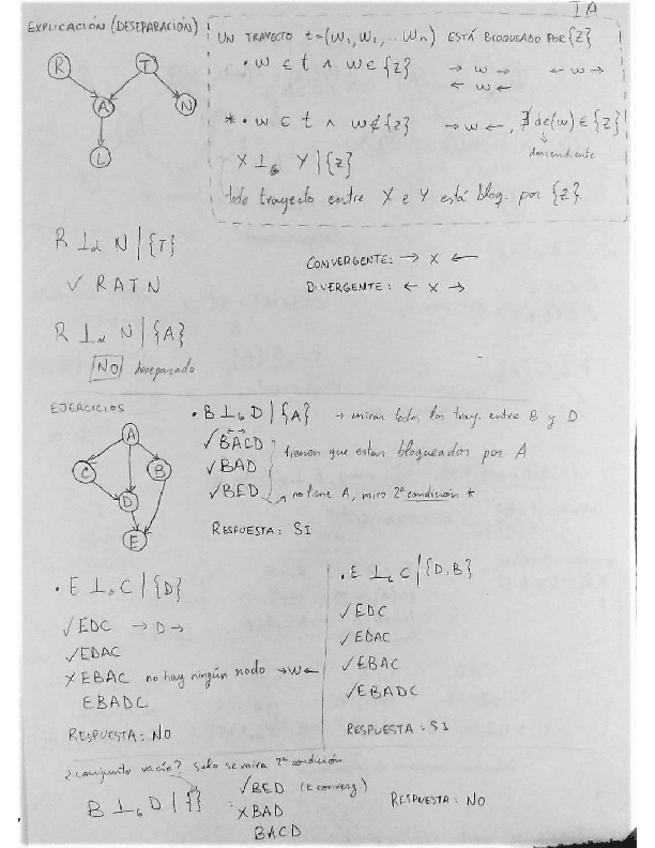 IA
EXPLICACIÓN (DESEPARACIÓN)
R
T
A
N
L
UN TRAYECTO t=(W₁,W₂,..Wn) ESTÁ BLOQUEADO POR {Z}
• w ∈ t ∧ w ∈ {Z} → w → ← w →
← w ←
* • w ∈ t ∧ w ∉ {Z} → w ←, ∄ de(w) ∈ {Z}
descendiente
X ⊥G Y | {Z}
todo trayecto entre X e Y está bloq. por {Z}.
R ⊥d N | {T}
✓ R A T N
CONVERGENTE: → X ←
DIVERGENTE: ← X →
R ⊥d N | {A}
NO deseparado
EJERCICIOS
A
C
B
D
E
• B ⊥G D | {A} → mirar todos los tray. entre B y D
✓ BACD
✓ BAD
✓ BED
tienen que estar bloqueados por A
no tiene A, miro 2ª condición *
RESPUESTA: SI
• E ⊥G C | {D}
✓ EDC → D →
✓ EDAC
X EBAC no hay ningún nodo → W ←
EBADC
RESPUESTA: NO
• E ⊥G C | {D,B}
✓ EDC
✓ EDAC
✓ EBAC
✓ EBADC
RESPUESTA: SI
¿conjunto vacío? solo se mira 2ª condición
B ⊥G D | {}
✓ BED (E converg.)
X BAD
BACD
RESPUESTA: NO